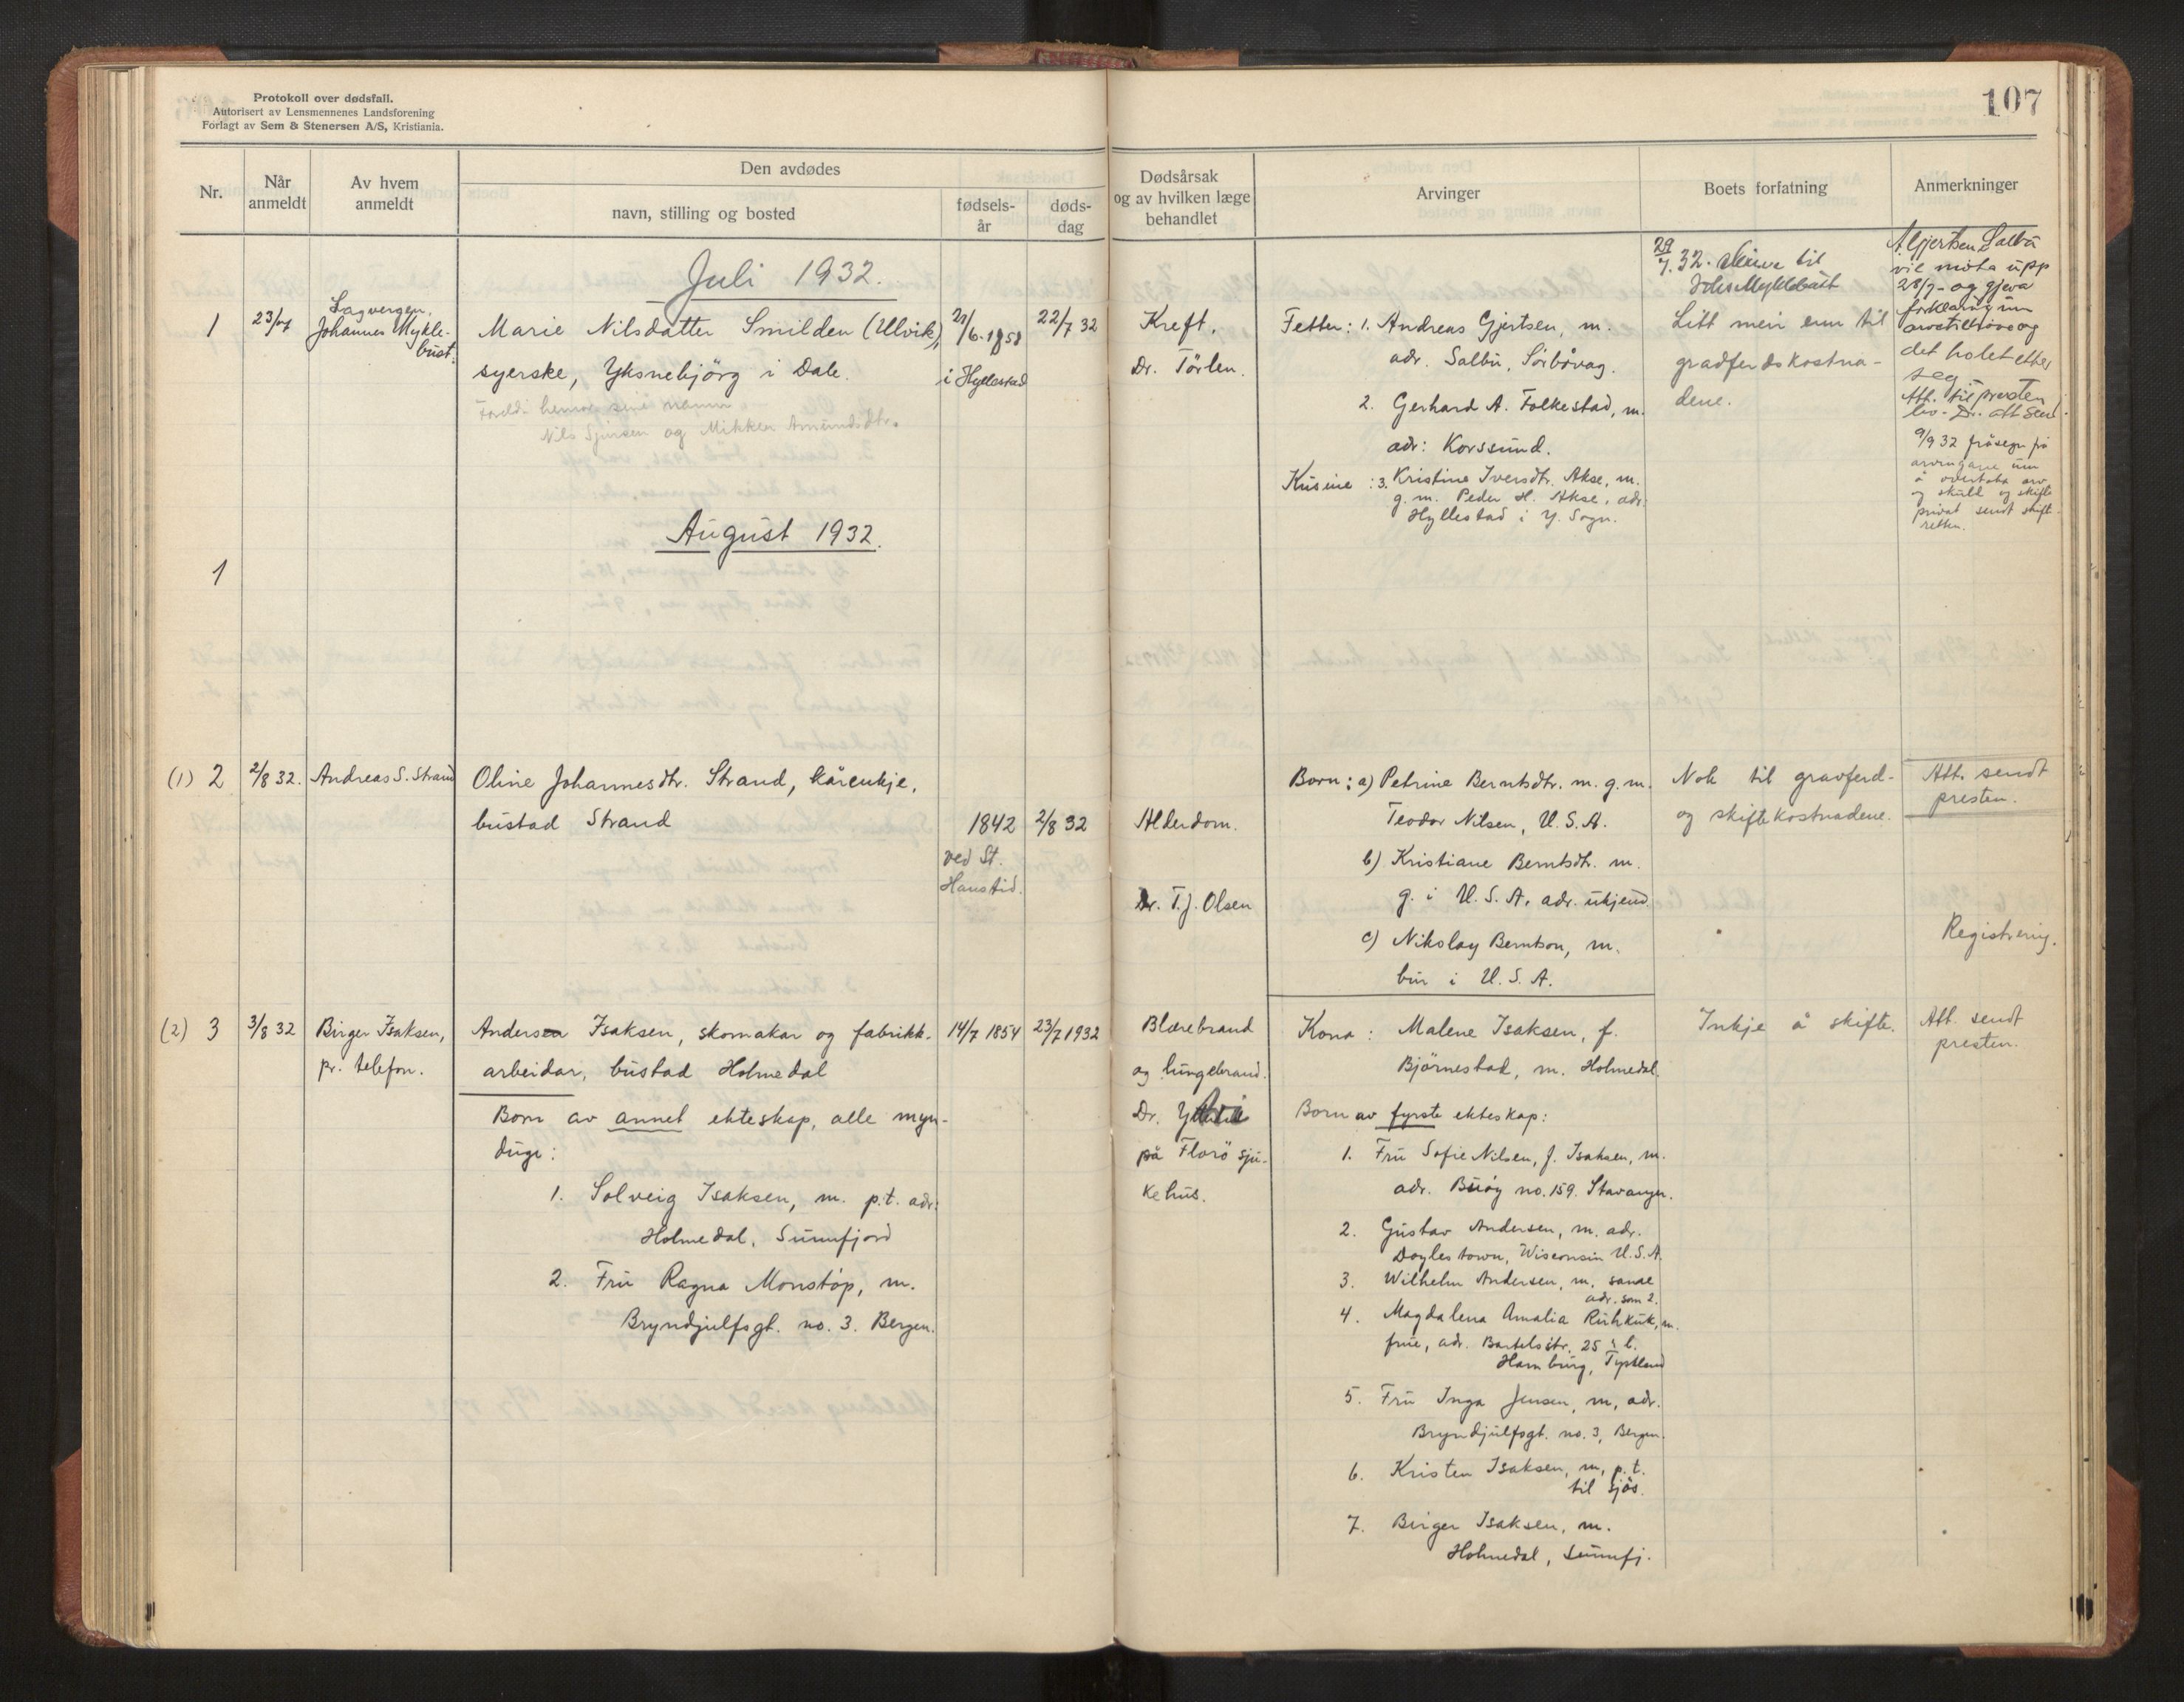 Protokoll over dødsfall.
Autorisert av Lensmennenes Landsforening
Forlagt av Sem & Stenersen A/S, Kristiania.
107
Nr.
Når anmeldt
Av hvem anmeldt
Den avdødes
navn, stilling og bosted
fødsels-år
døds-dag
Dødsårsak og av hvilken læge behandlet
Arvinger
Boets forfatning
Anmerkninger
Juli 1932.
1
23/7
Lagvergen,
Johannes Mykle-
bust.
Marie Nilsdatter Smilden (Ulvik),
syerske, Yksnebjörg i Dale.
Foreldr. hennar
Nils Sjursen og Mikkla Amundsdtr.
21/6. 1858
i Hyllestad
22/7 32
Kreft.
Dr. Törlen.
Fetter: 1. Andreas Gjertsen, m.
adr. Salbu, Sörbövag.
2. Gerhard A. Folkestad, m.
adr: Korssund.
Kusine : 3. Kristine Iversdtr. Akse, m.
g. m. Peder H. Akse, adr.
Hyllestad i Y. Sogn.
29/7. 32. skrive til
Litt meir enn til
gradferdskostna-
dene.
A. Gjertsen Salbu
vil möta upp
28/7 - og gjeva
forklaring um
arvetilhöve og
det holet etter
seg.
Att. til presten
9/9 32 fråsegn frå
arvingane um
å overtaka arv
og skuld og skifte
privat sendt skift-
retten.
August 1932.
1
(1) 2
2/8 32.
Andreas S. Strand
Oline Johannesdtr. Strand, kårenkje,
bustad Strand
1842
ved St.
Hanstid.
2/8 32
Alderdom.
Dr. T. J. Olsen
Born: a) Petrine Berntsdtr. m. g. m.
Teodor Nilsen, U. S. A.
b) Kristiane Berntsdtr. m.
g. i U. S. A. adr. ukjend.
c) Nikolay Berntson, m.
bur i U. S. A.
Nok til gravferd-
og skiftekostnadene.
Att. sendt
presten.
Registrering.
(2) 3
3/8 32
Birger Isaksen,
pr. telefon.
Anders Isaksen, skomakar og fabrikk-
arbeidar, bustad Holmedal
14/7 1854
23/7 1932
Blærebrand
og lungebrand.
Dr.
på Florö sju-
kehus.
Born av annet ekteskap, alle myn-
dige:
1. Solveig Isaksen, m. p.t. adr:
Holmedal, Sunnfjord
2. Fru Ragna Monstöp, m.
Bryndjulfsgt. no. 3. Bergen.
Kona: Malene Isaksen, f.
Bjørnestad, m. Holmedal.
Born av fyrste ekteskap:
1. Fru Sofie Nilsen, f. Isaksen, m.
adr. Buöy no. 159. Stavanger.
2. Gustav Andersen, m. adr.
Doylestown, Wisconsin U. S. A.
3. Wilhelm Andersen, m. same
adr. som 2.
4. Magdalena Amalia m.
frue, adr. Bartelsstr. 25
Hamburg, Tyskland
5. Fru Inga Jensen, m, adr.
Bryndjulfsgt. no. 3, Bergen.
6. Kristen Isaksen, m, p. t.
til sjös.
7. Birger Isaksen, m.
Holmedal, Sunnfj.
Inkje å skifte.
Att. sendt
presten.